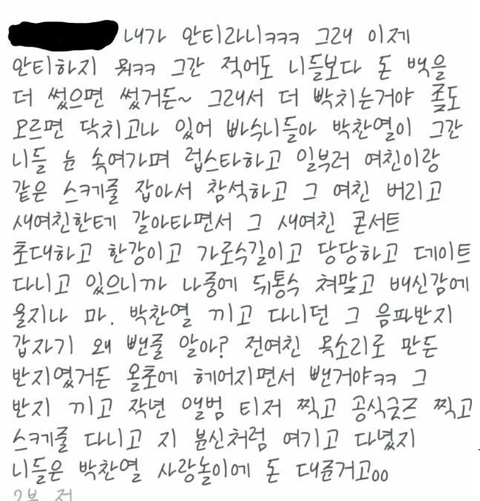 내가 안티라니ㅋㅋㅋ 그래 이제
안티하지 뭐ㅋㅋ 그간 적어도 니들보다 돈 백을
더 썼으면 썼거든~ 그래서 더 빡치는거야 좆도
모르면 닥치고나 있어 빠수니들아 박찬열이 그간
니들 눈 속여가며 럽스타하고 일부러 여친이랑
같은 스케줄 잡아서 참석하고 그 여친 버리고
새여친한테 갈아타면서 그 새여친 콘서트
초대하고 한강이고 가로수길이고 당당하고 데이트
다니고 있으니까 나중에 뒤통수 쳐맞고 배신감에
울지나 마. 박찬열 끼고 다니던 그 음파반지
갑자기 왜 뺀줄 알아? 전여친 목소리로 만든
반지였거든 올초에 헤어지면서 뺀거야ㅋㅋ 그
반지 끼고 작년 앨범 티저 찍고 공식굿즈 찍고
스케줄 다니고 지 분신처럼 여기고 다녔지
니들은 박찬열 사랑놀이에 돈 대준거고ㅇㅇ